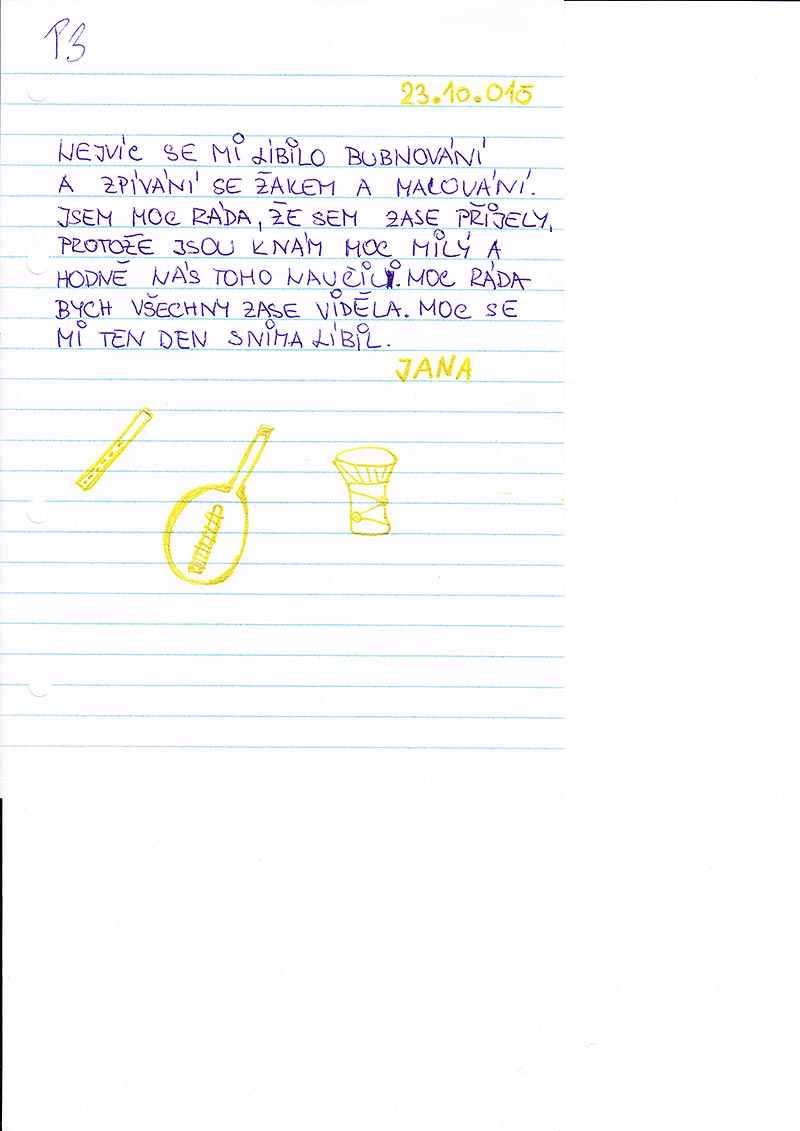 P3
23.10.015
NEJVÍC SE MI LÍBILO BUBNOVÁNÍ
A ZPÍVÁNÍ SE ŽAKEM A MALOVÁNÍ.
JSEM MOC RÁDA, ŽE SEM ZASE PŘIJELY,
PROTOŽE JSOU K NÁM MOC MILÝ A
HODNĚ NÁS TOHO NAUČILI. MOC RÁDA
BYCH VŠECHNY ZASE VIDĚLA. MOC SE
MI TEN DEN SNIMA LÍBIL.
JANA